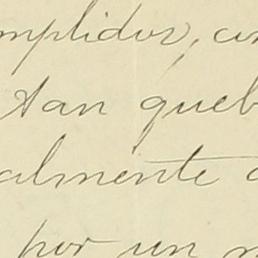 mplidos, con
tan queb
almente a
por un m